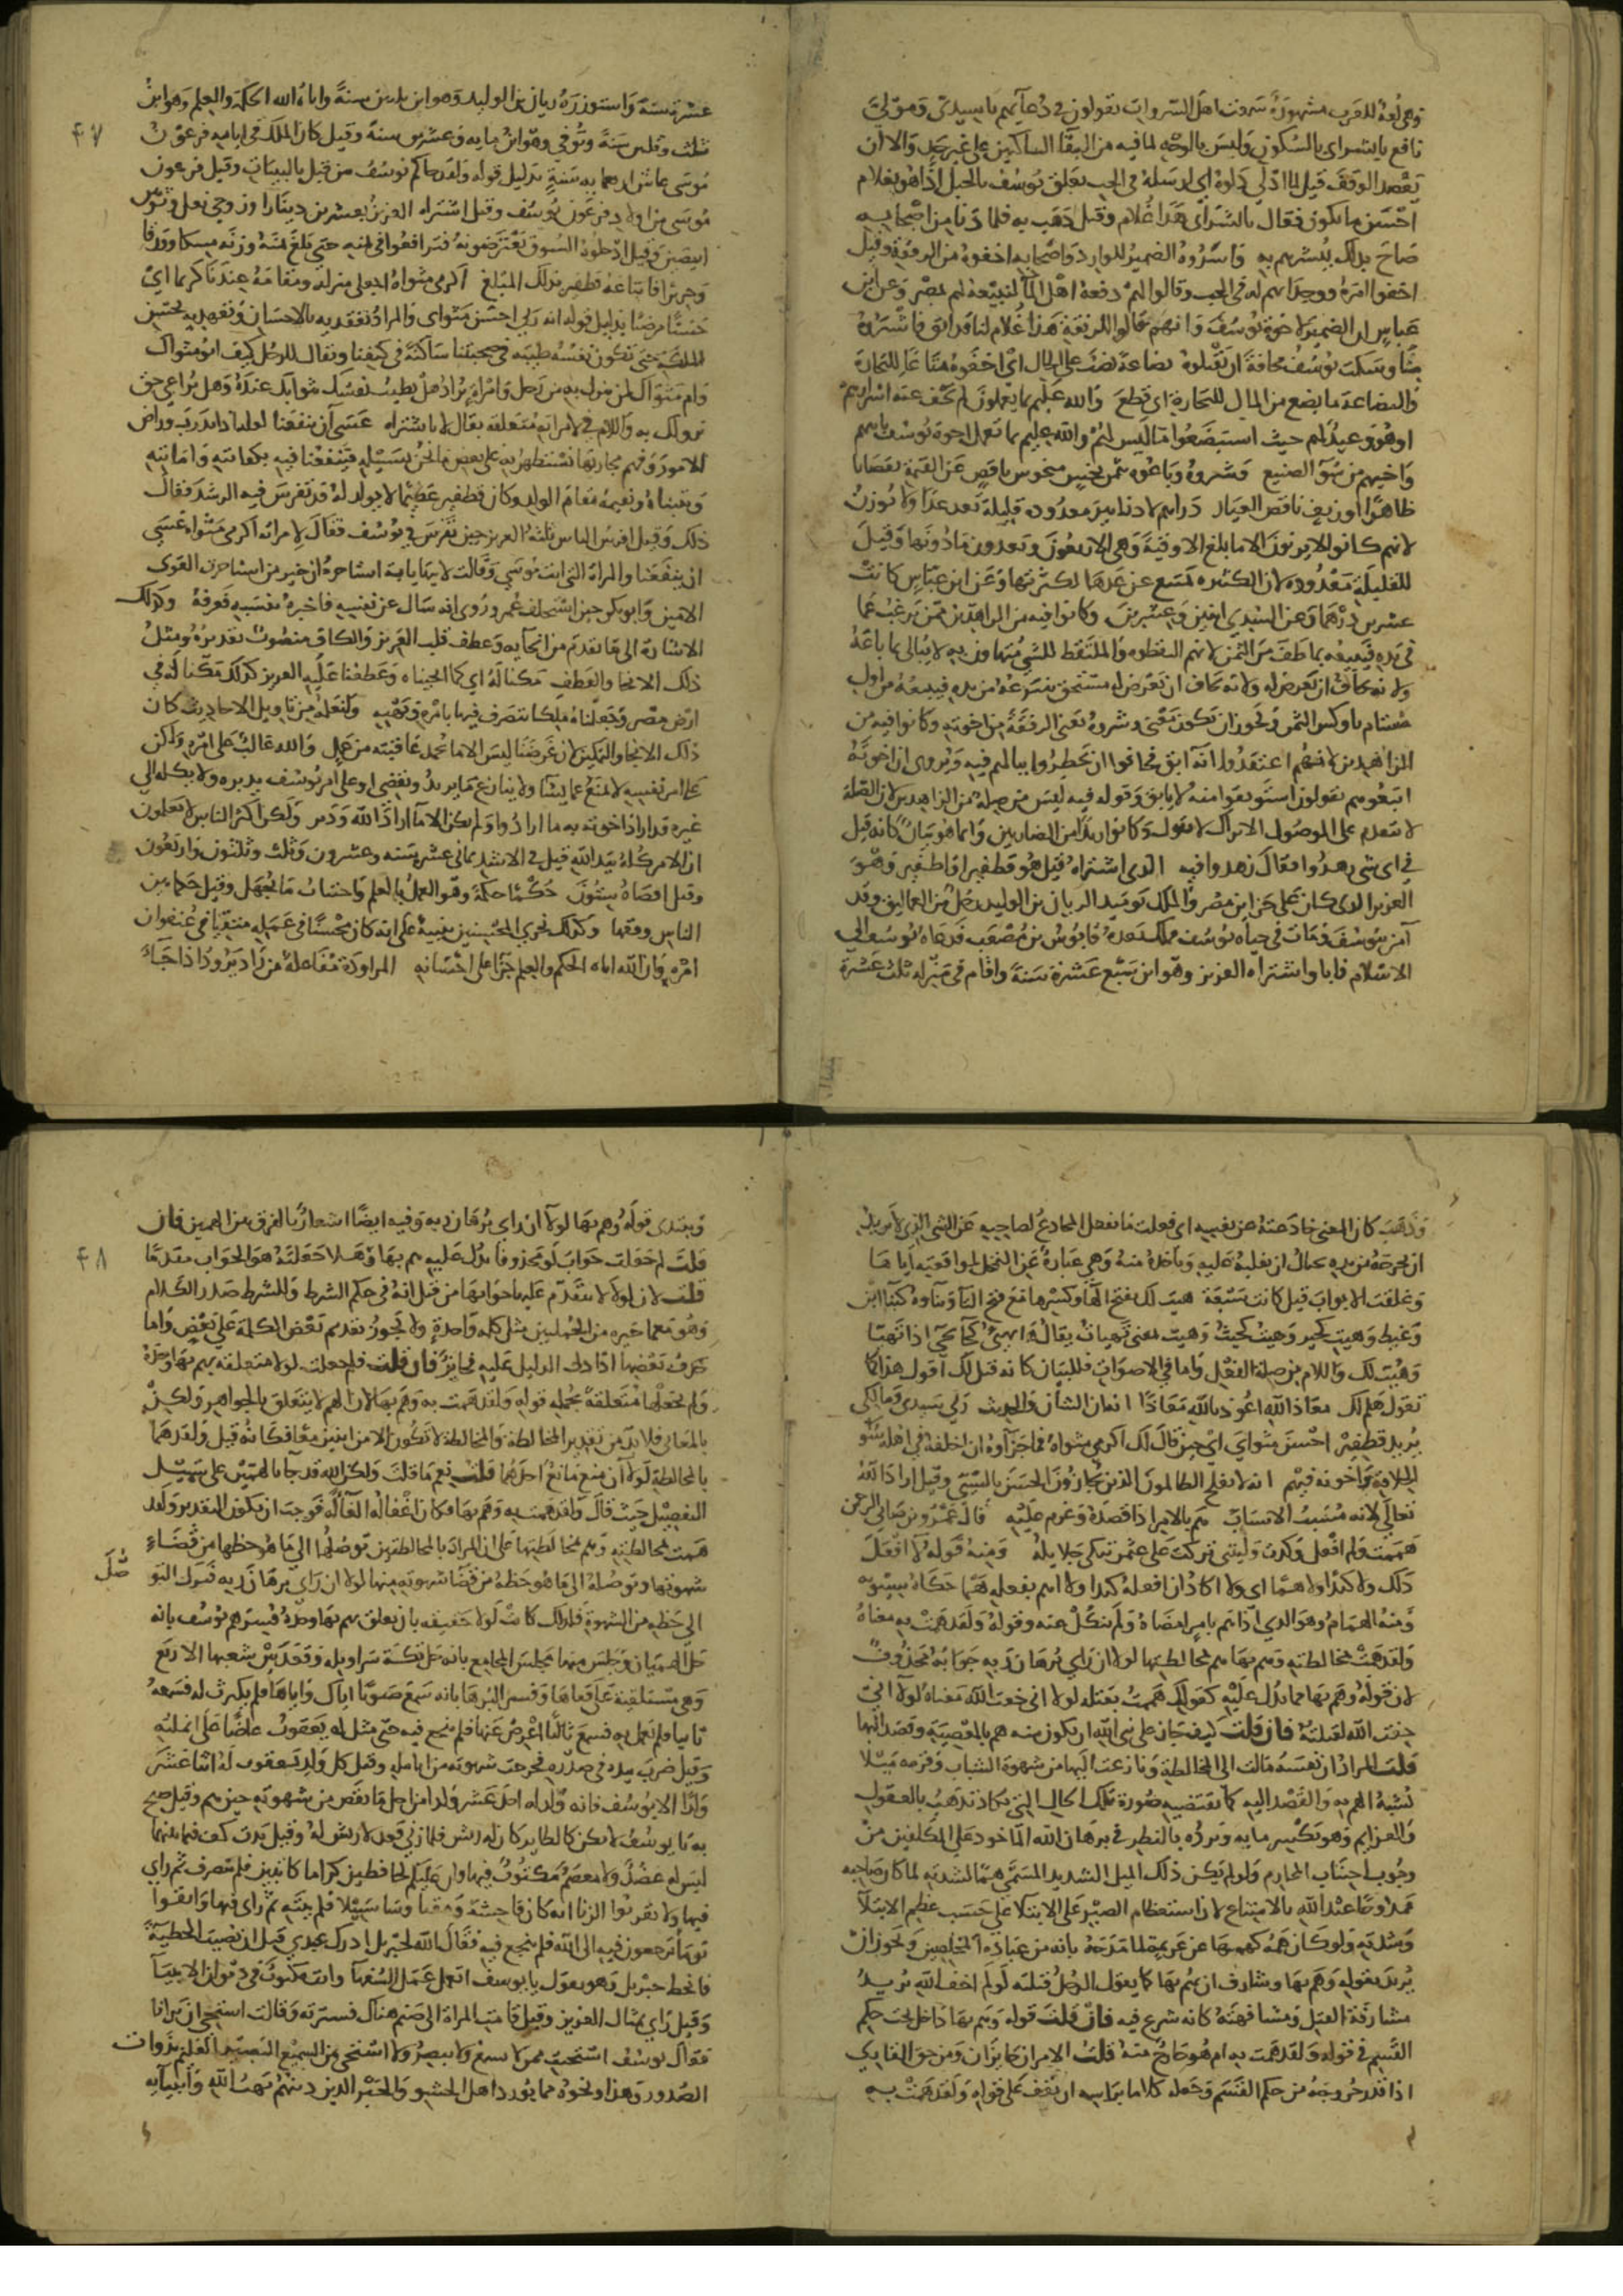 وهي لغة للعرب مشهورة سمعت اهل السروات يقولون في دعائهم يا سيدي ومولي
نافع يا بشراي بالسكون وليس بالوجه لما فيه من التقاء الساكنين على غير حده والا ان
يقصد الوقف قيل لما ادلى دلوه اي ارسله في الجب تعلق يوسف بالحبل اذا هو بغلام
احسن ما يكون فقال يا بشراي هذا غلام وقيل ذهب به فلما دنا من اصحابه
صاح بذلك يبشرهم به واسروه الضمير للوارد واصحابه اخفوه من الرفقة وقيل
اخفوا امره ووجدانهم له في الجب وقالوا لهم دفعه اهل الماء لنبيعه لهم بمصر وعن ابن
عباس ان الضمير لاخوة يوسف وانهم قالوا للرفقة هذا غلام لنا قد ابق فاشتروه
منا وسكت يوسف مخافة ان يقتلوه بضاعة نصب على الحال اي اخفوه متاعا للتجارة
والبضاعة ما بضع من المال للتجارة اي قطع والله عليم بما يعملون لم يخف عنه اسرارهم
او هو وعيد لهم حيث استبضعوا ما ليس لهم والله عليم بما يعمل اخوة يوسف بابيهم
واخيهم من سوء الصنيع وشروه وباعوه بثمن بخس مبخوس ناقص عن القيمة نقصانا
ظاهرا او زيف ناقص العيار دراهم لا دنانير معدودة قليلة تعد عدا ولا توزن
لانهم كانوا لا يزنون الا ما بلغ الاوقية وهي الاربعون ويعدون ما دونها وقيل
للقليلة معدودة لان الكثيرة تمتنع عن عدها لكثرتها وعن ابن عباس كانت
عشرين درهما وعن السدي اثنين وعشرين وكانوا فيه من الزاهدين ممن يرغب عما
في يده فيبيعه بما طف من الثمن لانهم التقطوه والملتقط للشيء متهاون به لا يبالي بما باعه
ولانه يخاف ان يعرض له مستحق ينتزعه من يده فيبيعه من اول
مساوم باوكس الثمن ويجوز ان يكون معنى وشروه يعني الرفقة من اخوته وكانوا فيه من
الزاهدين لانهم اعتقدوا انه ابق فخافوا ان يخطروا بمالهم فيه ويروى ان اخوته
اتبعوهم يقولون استوثقوا منه لا يابق وقوله فيه ليس من صلة من الزاهدين لان الصلة
لا تتقدم على الموصول الا تراك لا تقول وكانوا زيدا من الضاربين وانما هو بيان كانه قيل
في اي شيء زهدوا فقال زهدوا فيه الذي اشتراه قيل هو قطفير او اطفير وهو
العزيز الذي كان على خزاين مصر والملك يومئذ الريان بن الوليد رجل من العماليق وقد
آمن بيوسف ومات في حياة يوسف فملك بعده قابوس بن مصعب فدعاه يوسف الى
الاسلام فابى واشتراه العزيز وهو ابن سبع عشرة سنة واقام في منزله ثلث عشرة
٤٧
عشرة سنة واستوزره ريان بن الوليد وهو ابن ثلاثين سنة واتاه الله الحكمة والعلم وهو ابن
ثلث وثلثين سنة وتوفي وهو ابن مايه وعشرين سنة وقيل كان الملك في ايامه فرعون
موسى عاش اربعمايه سنة بدليل قوله ولقد جاكم يوسف من قبل بالبينات وقيل فرعون
موسى من اولاد فرعون يوسف وقيل اشتراه العزيز بعشرين دينارا وزوجي نعل وثوبين
ابيضين وقيل ادخلوه السوق يعرضونه فترافعوا في ثمنه حتى بلغ ثمنه وزنه مسكا وورقا
وحريرا فابتاعه قطفير بذلك المبلغ اكرمي مثواه اجعلي منزله ومقامه عندنا كريما اي
حسنا مرضيا بدليل قوله انه ربي احسن مثواي والمراد تفقديه بالاحسان وتعهديه بحسن
الملكة حتى تكون نفسه طيبة في صحبتنا ساكنة في كنفنا ويقال للرجل كيف ابو مثواك
وام مثواك لمن ينزل به من رجل وامراة يراد هل تطيب نفسك بثوائك عنده وهل يراعي حق
نزولك به واللام في لامراته متعلقة بقال لا باشتراه عسى ان ينفعنا لعله اذا تدرب وراض
الامور وفهم مجاريها نستظهر به على بعض ما نحن بسبيله فينفعنا فيه بكفايته وامانته
او نتبناه ونقيمه مقام الولد وكان قطفير عقيما لا يولد له وقد تفرس فيه الرشد فقال
ذلك وقيل افرس الناس ثلثة العزيز حين تفرس في يوسف فقال لامراته اكرمي مثواه عسى
ان ينفعنا والمراة التي اتت موسى وقالت لابيها يا ابت استاجره ان خير من استاجرت القوي
الامين وابو بكر حين استخلف عمر وروي انه سال عن نفسه فاخبره بنسبه فعرفه وكذلك
الاشارة الى ما تقدم من انجايه وعطف قلب العزيز والكاف منصوب تقديره ومثل
ذلك الانجا والعطف مكنا له اي كما انجيناه وعطفنا عليه العزيز كذلك مكنا له في
ارض مصر وجعلناه ملكا يتصرف فيها بامره ونهيه ولنعلمه من تاويل الاحاديث كان
ذلك الانجا والتمكين لان غرضنا ليس الا ما تحمد عاقبته من عمل والله غالب على امره ولكن
على امر نفسه لا يمنع عما يشا ولا ينازع ما يريد ويقضي او على امر يوسف يدبره ولا يكله الى
غيره قد اراد اخوته به ما ارادوا ولم يكن الا ما اراد الله ودبر ولكن اكثر الناس لا يعلمون
ان الامر كله بيد الله قيل في الاشد ثماني عشرة سنه وعشرون وثلث وثلثون واربعون
وقيل اقصاه ستون حكما حكمة وهو العمل بالعلم واجتناب ما يجهل وقيل حكما بين
الناس وفقها وكذلك نجزي المحسنين تنبيه على انه كان محسنا في عمله متقيا في عنفوان
امره وان الله اتاه الحكم والعلم جزا على احسانه المراودة مفاعلة من راد يرود اذا جاء
وذهب كان المعنى خادعته عن نفسه اي فعلت ما يفعل المخادع لصاحبه عن الشيء الذي لا يريد
ان يخرجه من يده يحتال ان يغلبه عليه وياخذه منه وهي عبارة عن التمحل لمواقعته اياها
وغلقت الابواب قيل كانت سبعة هيت لك بفتح الها وكسرها مع فتح التا وبناوه كبنا اين
وعيط وهيت كجير وهيت كحيث وهيت بمعنى تهيات يقال هاء يهيئ كجاء يجيء اذا تهيا
وهيئت لك واللام من صلة الفعل واما في الاصوات فللبيان كانه قيل لك اقول هذا كما
تقول هلم لك معاذ الله اعوذ بالله معاذا انه ان الشان والحديث ربي سيدي ومالكي
يريد قطفير احسن مثواي اي حين قال لك اكرمي مثواه فما جزاوه ان اخلفه في اهله سوء
الخلافة واخونه فيهم انه لا يفلح الظالمون الذين يجازون الحسن بالسيئ وقيل اراد الله
تعالى لانه مسبب الاسباب هم بالامر اذا قصده وعزم عليه قال عمرو بن ضابي البرجمي
هممت ولم افعل وكدت وليتني تركت على عثمن تبكي حلايله ومنه قوله لا افعل
ذلك ولا كيدا ولا هما اي ولا اكاد ان افعله كيدا ولا اهم بفعله هما حكاه سيبويه
ومنه الهمام وهو الذي اذا هم بامر امضاه ولم ينكل عنه وقوله ولقد همت به معناه
ولقد همت بمخالطته وهم بها هم بمخالطتها لولا ان راي برهان ربه جوابه محذوف
لان قوله وهم بها مما يدل عليه كقولك هممت بقتله لولا اني خفت الله معناه لولا اني
خفت الله لقتلته فان قلت كيف جاز على نبي الله ان يكون منه هم بالمعصية وقصد اليها
قلت المراد ان نفسه مالت الى المخالطة ونازعت اليها من شهوة الشباب وقرمه ميلا
يشبه الهم به والقصد اليه كما تقتضيه صورة تلك الحال التي تكاد تذهب بالعقول
والعزايم وهو يكسر ما به ويرده بالنظر في برهان الله الماخوذ على المكلفين من
وجوب اجتناب المحارم ولو لم يكن ذلك الميل الشديد المسمى هما لشدته لما كان صاحبه
ممدوحا عند الله بالامتناع لان استعظام الصبر على الابتلا على حسب عظم الابتلا
وشدته ولو كان همه كهمها عن عزيمة لما مدحه بانه من عباده المخلصين ويجوز ان
يريد بقوله وهم بها وشارف ان يهم بها كما يقول الرجل قتلته لو لم اخف الله يريد
مشارفة القتل ومشافهته كانه شرع فيه فان قلت قوله وهم بها داخل تحت حكم
القسم في قوله ولقد همت به ام هو خارج منه قلت الامران جايزان ومن حق القاري
اذا قدر خروجه من حكم القسم وجعله كلاما براسه ان يقف على قوله ولقد همت به
٤٨
ويبتدي قوله وهم بها لولا ان راي برهان ربه وفيه ايضا اشعار بالفرق بين الهمين فان
قلت لم جعلت جواب لولا محذوفا يدل عليه هم بها وهلا جعلته هو الجواب مقدما
قلت لان لولا لا يتقدم عليها جوابها من قبل انه في حكم الشرط وللشرط صدر الكلام
وهو مع ما في حيزه من الجملتين مثل كلمة واحدة ولا يجوز تقديم بعض الكلمة على بعض واما
حذف بعضها اذا دل الدليل عليه فجايز فان قلت فلم جعلت لولا متعلقة بهم بها وحده
ولم تجعلها متعلقة بجملة قوله ولقد همت به وهم بها لان الهم لا يتعلق بالجواهر ولكن
بالمعاني فلا بد من تقدير المخالطة والمخالطة لا تكون الا من اثنين معا فكانه قيل ولقد هما
بالمخالطة لولا ان منع مانع احدهما قلت نعم ما قلت ولكن الله قد جا بالهمين على سبيل
التفصيل حيث قال ولقد همت به وهم بها فكان اغفاله الغاء له فوجب ان يكون التقدير ولقد
همت بمخالطته وهم بمخالطتها على ان المراد بالمخالطتين توصلها الى ما هو حظها من قضاء
شهوتها وتوصله الى ما هو حظه من قضا شهوته منها لولا ان راي برهان ربه فترك التو
صُّل
الى حظه من الشهوة فلذلك كانت لولا حقيقة بان تعلق بهم بها وحده فسر هم يوسف بانه
حل الهميان وجلس منها مجلس المجامع بانه حل تكة سراويله وقعد بين شعبها الاربع
وهي مستلقية على قفاها وفسر البرهان بانه سمع صوتا اياك واياها فلم يكترث له فسمعه
ثانيا فلم يعمل به فسمع ثالثا اعرض عنها فلم ينجع فيه حتى مثل له يعقوب عاضا على انملته
وقيل ضرب بيده في صدره فخرجت شهوته من انامله وقيل كل ولد يعقوب له اثنا عشر
ولدا الا يوسف فانه ولد له احد عشر ولدا من اجل ما نقص من شهوته حين هم وقيل صيح
به يا يوسف لا تكن كالطاير كان له ريش فلما زنى قعد لا ريش له وقيل بدت كف فيما بينهما
ليس له عضد ولا معصم مكتوب فيها وان عليكم لحافظين كراما كاتبين فلم ينصرف ثم راي
فيها ولا تقربوا الزنا انه كان فاحشة ومقتا وسا سبيلا فلم ينته ثم راي فيها واتقوا
يوما ترجعون فيه الى الله فلم ينجع فيه فقال الله لجبريل ادرك عبدي قبل ان يصيب الخطيئة
فانحط جبريل وهو يقول يا يوسف اتعمل عمل السفها وانت مكتوب في ديوان الانبيا
وقيل راي تمثال العزيز وقيل قامت المراة الى صنم هناك فسترته وقالت استحي ان يرانا
فقال يوسف استحيت ممن لا يسمع ولا يبصر ولا استحي من السميع البصير العليم بذوات
الصدور وهذا ونحوه مما يورده اهل الحشو والجبر الذين دينهم بهت الله وانبيايه